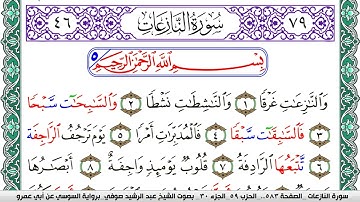 ٧٩ سُورَةُ النَّازِعَاتِ ٤٦
بِسْمِ اللَّهِ الرَّحْمَٰنِ الرَّحِيمِ
وَالنَّـٰزِعَـٰتِ غَرْقًا ١ وَالنَّـٰشِطَـٰتِ نَشْطًا ٢ وَالسَّـٰبِحَـٰت سَّبْحًا
٣ فَالسَّـٰبِقَـٰت سَّبْقًا ٤ فَالْمُدَبِّرَٰتِ أَمْرًا ٥ يَوْمَ تَرْجُفُ الرَّاجِفَة
٦ تَّتْبَعُهَا الرَّادِفَةُ ٧ قُلُوبٌ يَوْمَئِذٍ وَاجِفَةٌ ٨ أَبْصَـٰرُهَا
سورة النازعات . الصفحة ٥٨٣.. الحزب ٥٩ . الجزء ٣٠ . بصوت الشيخ عبد الرشيد صوفي. برواية السوسي عن أبي عمرو